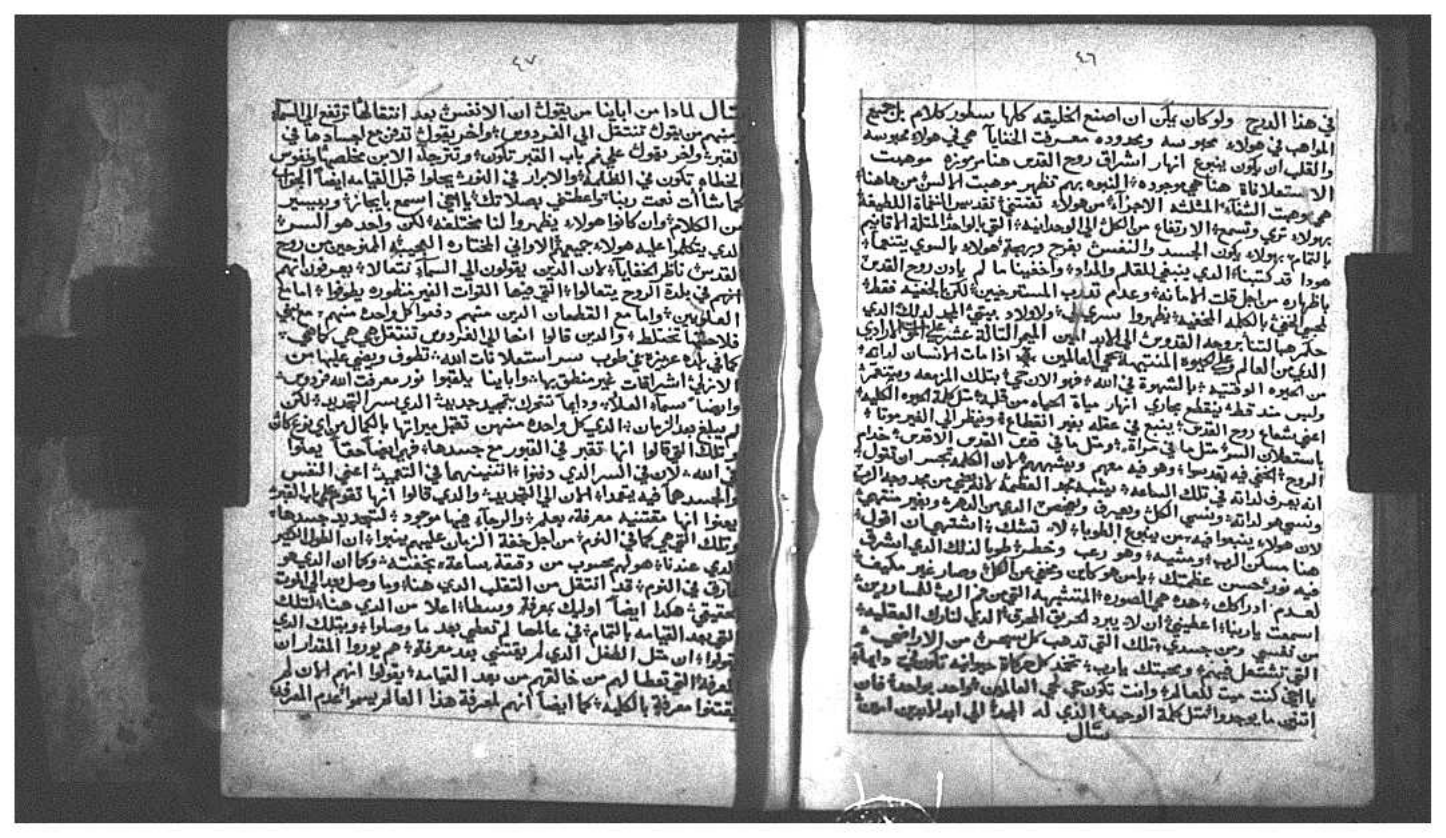 ٤٦
في هذا الدرج ولو كان يمكن ان اصنع الخليقه كلها سطور كلام بل جميع
المواهب في هولاء محبوسه ومحدوده معرفت الخفايا هي في هولاء محبوسه
والقلب ان يكون ينبوع انهار اشراق روح القدس هنا مرموزه موهبت
الاستعلانات هنا هي موجوده النبوه بهم تظهر موهبت الالسن من هاهنا
هي موهبت الشفاء المثلثة الاجزاء من هولاء تقتني تقديس النقاة اللطيفة
بهولاء تري وتسمع الارتفاع من الكل الي الوحدانيه التي بالواحد المثلثة الاقانيم
بالتمام بهولاء يكون الجسد والنفس بفرح وبهجة هولاء بالسوي يتنعما
هودا قد كتبنا الذي ينبغي للقلم والمداد واخفينا ما لم يادن روح القدس
باظهاره من اجل قلت الامانه وعدم تدرب المستوجبين لكن الخفيه فقط
لمحبي الخفي بالكليه المخفيه يظهروا سري لي ولاولاد بيتي المجد لذلك الذي
حكم هبا لتنا بروحه القدوس الي الابد امين الميمر التالة عشر
الذي من العالم الحيوه المنتبهة حي العالمين يحيي اذا مات الانسان لداته
من الحيوه الوقتيه بالشهوة في الله فهو الان حي بتلك المزمعه ويتنعم
وليس منه قط ينقطع مجاري انهار مياة الحياه من قلبه مثل كلمة الحيوه الكليه
اعني شعاع روح القدس ينبع في عقله بغير انقطاع وينظر الي الغير موتا
باستعلان السر مثل ما في مراة ومثل ما في قدس القدس الاقدس خدام
الروح الخفي فيه يقدسوا وهو فيه معهم ويشبههم لان الكلمه تجسر ان تقول
انه يعرف لداته في تلك الساعه يشبه مجد العظيمة من مجد وجه الرب
ونسي هو لداته ونسي الكل ويعرف ويفحص الذي من الدهر وبغير منتهي
لان هولاء ينبعوا فيه من ينبوع الطوبا لا تشك اشتهي ان اقول
هنا مسكن الرب ومشيه وهو رعب وخطر طوبا لذلك الذي اشرق
فيه نور حسن عظمتك يا من هو كاين ومخفي من الكل وصار غير مكيف
لعدم ادراكك هده هي الصوره المتشبهة التي من فم الرب للمساورين
اسمعت يا ربنا اعطيني ان لا يبرد الحريق المحرق الذي لنارك العقليه
من نفسي ومن جسدي تلك التي تدهب كل سجس من الاراضي
التي تشتعل فيهم ومحبتك يا رب تتخد كل حركاة حيوانيه تكون فيي دايما
يا اخي كنت ميت للعالم وانت تكون حي لحي العالمين واحد بواحد فان
اتنين ما يوجدوا مثل كلمة الوحيد الذي له المجد الي ابد الابدين امين
سال
٤٧
سال لمادا من اباينا من يقول ان الانفس بعد انتقالها ترتفع الي السماء
ومنهم من يقول تنتقل الي الفردوس واخر يقول تدفن مع اجسادها في
القبر واخر يقول علي فم باب القبر تكون وتترجا الابن مخلصها ونفوس
الخطاه تكون في الظلمة والابرار في النور يحلوا قبل القيامه ايضا الجواب
كما شاات نعمت ربنا واعطتني بصلاتك يا اخي اسمع بايجاز وبيسير
من الكلام وان كانوا هولاء يظهروا لنا مختلفه لكن واحد هو السر
الدي يتكلموا عليه هولاء جميعهم الاواني المختاره البهية الممزوجين من روح
القدس ناظر الخفايا لان الدين يقولون الي السماء تتعالا يعرفون بهم
انهم في بلدة الروح يتعالوا التي فيها القوات الغير منظوره يطوفوا اما مع
العلويين واما مع القطعان الدين منهم دفعوا كل واحده منهم
فلاحقنا تختلط والدين قالوا انها الي الفردوس تنتقل هي هي كما هي
كما في بلده عزيزة في طوب سر استعلانات الله تطوف ويضي عليها من
الازلي اشراقات غير منطق بها واباينا يلقبوا نور معرفت الله فردوس
وايضا سماء العلا ودايما تتحرك بتمجيد جديد الدي بسر التجديد لكن
لم يبلغ بعد الزمان الدي كل واحده منهن تقبل ميراتها بالكمال من اي نوع كان
وتلك التي قالوا انها تقبر في القبور مع جسدها فهي ايضا حقا يعلوا
في الله لان في السر الدي دفنوا اتنينهما في التعميد اعني النفس
والجسد هما فيه يتحدا الان الي التجديد والدي قالوا انها تقوم علي باب القبر
يعنوا انها مقتنيه معرفة بعلم والرجاء فيها موجود لتجديد جسدها
وتلك التي هي كما في النوم من اجل خفة الزمان عليهم يبنوا ان الطول الكثير
الدي عندنا هو لهم محسوب من دقيقة بساعه وكما ان الدي هو
غارق في النوم قد انتقل من التقلب الدي هنا وما وصل بعد الي الموت
حقيقي هكدا ايضا اوليك بمعرفة وسطا اعلا من الدي هنا لتلك
التي بعد القيامه بالتمام في عالمها لم تعطي بعد ما وصلوا وبتلك الدي
قولوا ان متل الطفل الدي لم يقتني بعد معرفة هم يوردوا المقدار ان
المعرفة التي تعطا لهم من خالقهم من بعد القيامه يقولوا انهم الان لم
يقتنوا معرفة بالكليه كما ايضا انهم لمعرفة هذا العالم يسموا عدم المعرفه